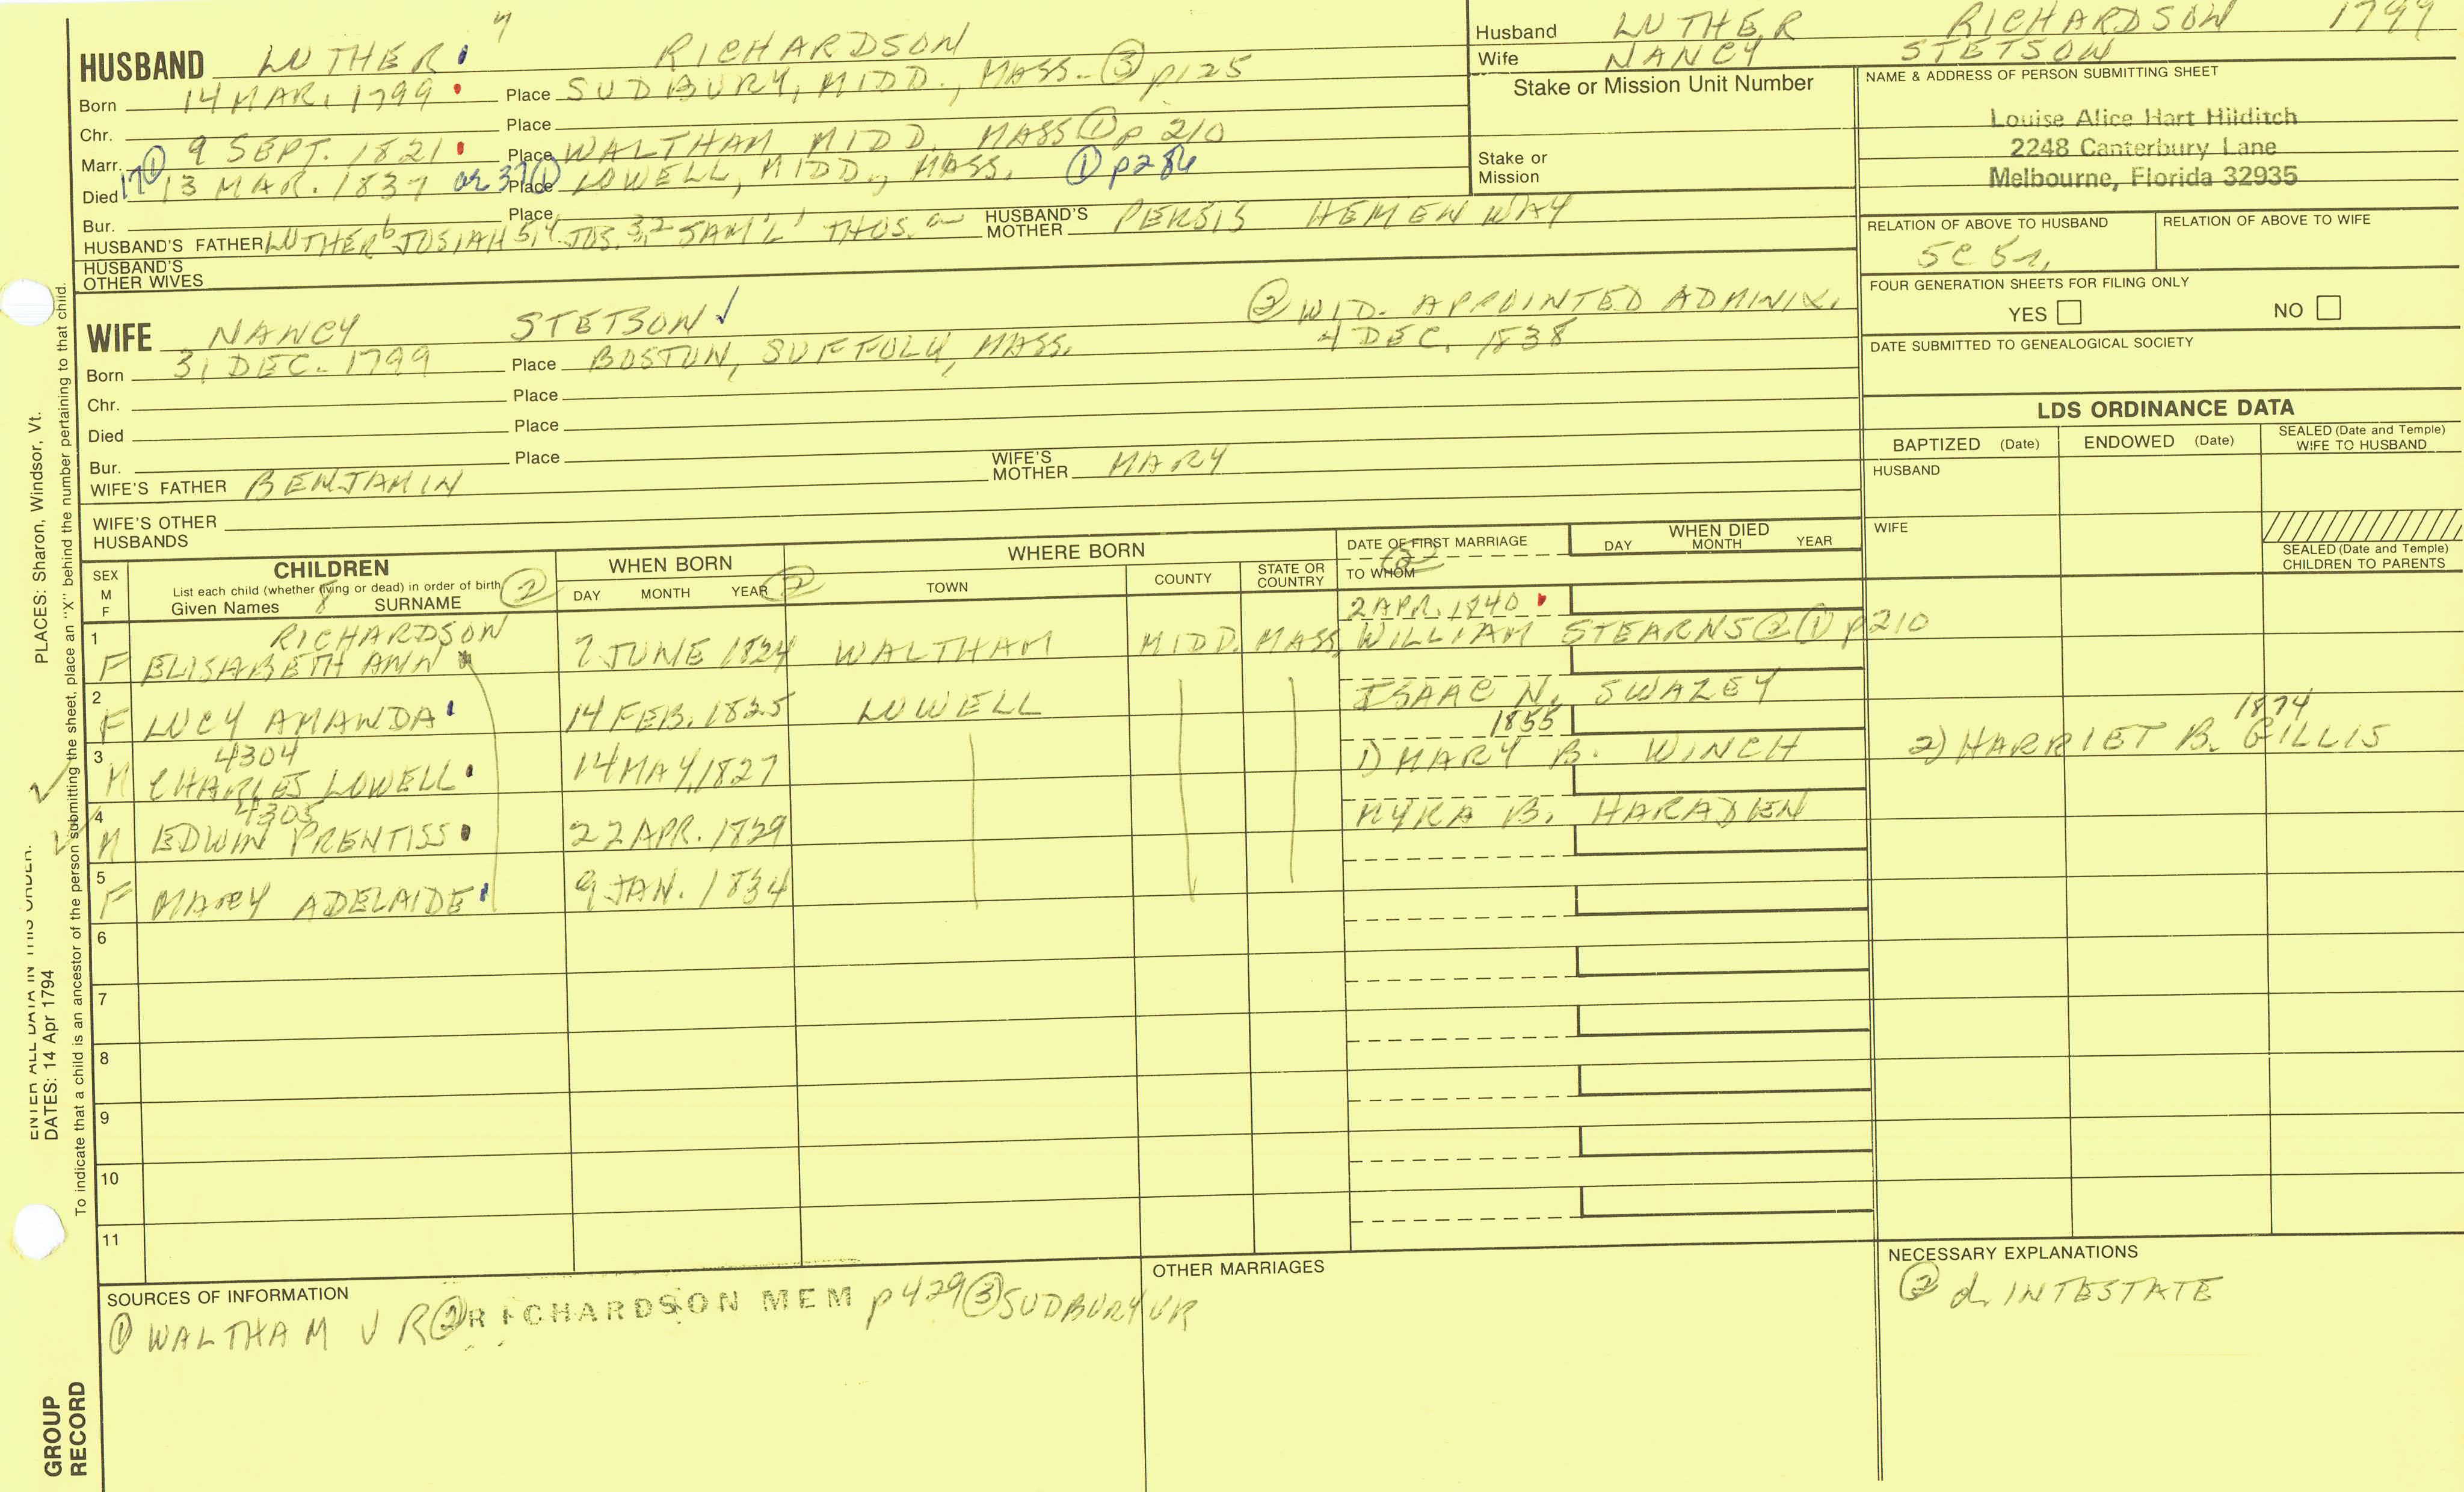 HUSBAND LUTHER 7 RICHARDSON
Born 14 MAR. 1799 Place SUDBURY, MIDD., MASS. ③ p125
Chr. Place
Marr. 9 SEPT. 1821 Place WALTHAM, MIDD. MASS ① p 210
Died 17 ① 13 MAR. 1837 or 37 ① Place LOWELL, MIDD., MASS. ① p286
Bur. Place
HUSBAND'S FATHER LUTHER 6 JOSIAH 5,4 JOS. 3,2 SAM'L 1 THOS. HUSBAND'S MOTHER PERSIS HEMENWAY
HUSBAND'S OTHER WIVES
Husband LUTHER RICHARDSON 1799
Wife NANCY STETSON
Stake or Mission Unit Number
Stake or Mission
NAME & ADDRESS OF PERSON SUBMITTING SHEET
Louise Alice Hart Hilditch
2248 Canterbury Lane
Melbourne, Florida 32935
RELATION OF ABOVE TO HUSBAND RELATION OF ABOVE TO WIFE
5C 5r.
FOUR GENERATION SHEETS FOR FILING ONLY
YES NO
DATE SUBMITTED TO GENEALOGICAL SOCIETY
WIFE NANCY STETSON ② WID. APPOINTED ADMINIX.
4 DEC. 1838
Born 31 DEC. 1799 Place BOSTON, SUFFOLK, MASS.
Chr. Place
Died Place
Bur. Place
WIFE'S FATHER BENJAMIN WIFE'S MOTHER MARY
WIFE'S OTHER HUSBANDS
LDS ORDINANCE DATA
BAPTIZED (Date) ENDOWED (Date) SEALED (Date and Temple) WIFE TO HUSBAND
HUSBAND
WIFE
SEALED (Date and Temple) CHILDREN TO PARENTS
SEX M F
CHILDREN
List each child (whether living or dead) in order of birth ②
Given Names 8 SURNAME
WHEN BORN
DAY MONTH YEAR ②
WHERE BORN
TOWN COUNTY STATE OR COUNTRY
DATE OF FIRST MARRIAGE
② TO WHOM
WHEN DIED
DAY MONTH YEAR
1 F RICHARDSON ELISABETH ANN 7 JUNE 1824 WALTHAM MIDD. MASS. 2 APR. 1840 WILLIAM STEARNS ② ① p210
2 F LUCY AMANDA 14 FEB. 1825 LOWELL ISAAC N. SWAZEY
3 M 4304 CHARLES LOWELL 14 MAY, 1827 1855 1) MARY B. WINCH 1874 2) HARRIET B. GILLIS
4 M 4305 EDWIN PRENTISS 22 APR. 1829 MYRA B. HARADEN
5 F MARY ADELAIDE 9 JAN. 1834
6
7
8
9
10
11
SOURCES OF INFORMATION
① WALTHAM V R ② RICHARDSON MEM p 429 ③ SUDBURY VR
OTHER MARRIAGES
NECESSARY EXPLANATIONS
② d. INTESTATE
PLACES: Sharon, Windsor, Vt.
To indicate that a child is an ancestor of the person submitting the sheet, place an "X" behind the number pertaining to that child.
ENTER ALL DATA IN THIS ORDER:
DATES: 14 Apr 1794
GROUP
RECORD